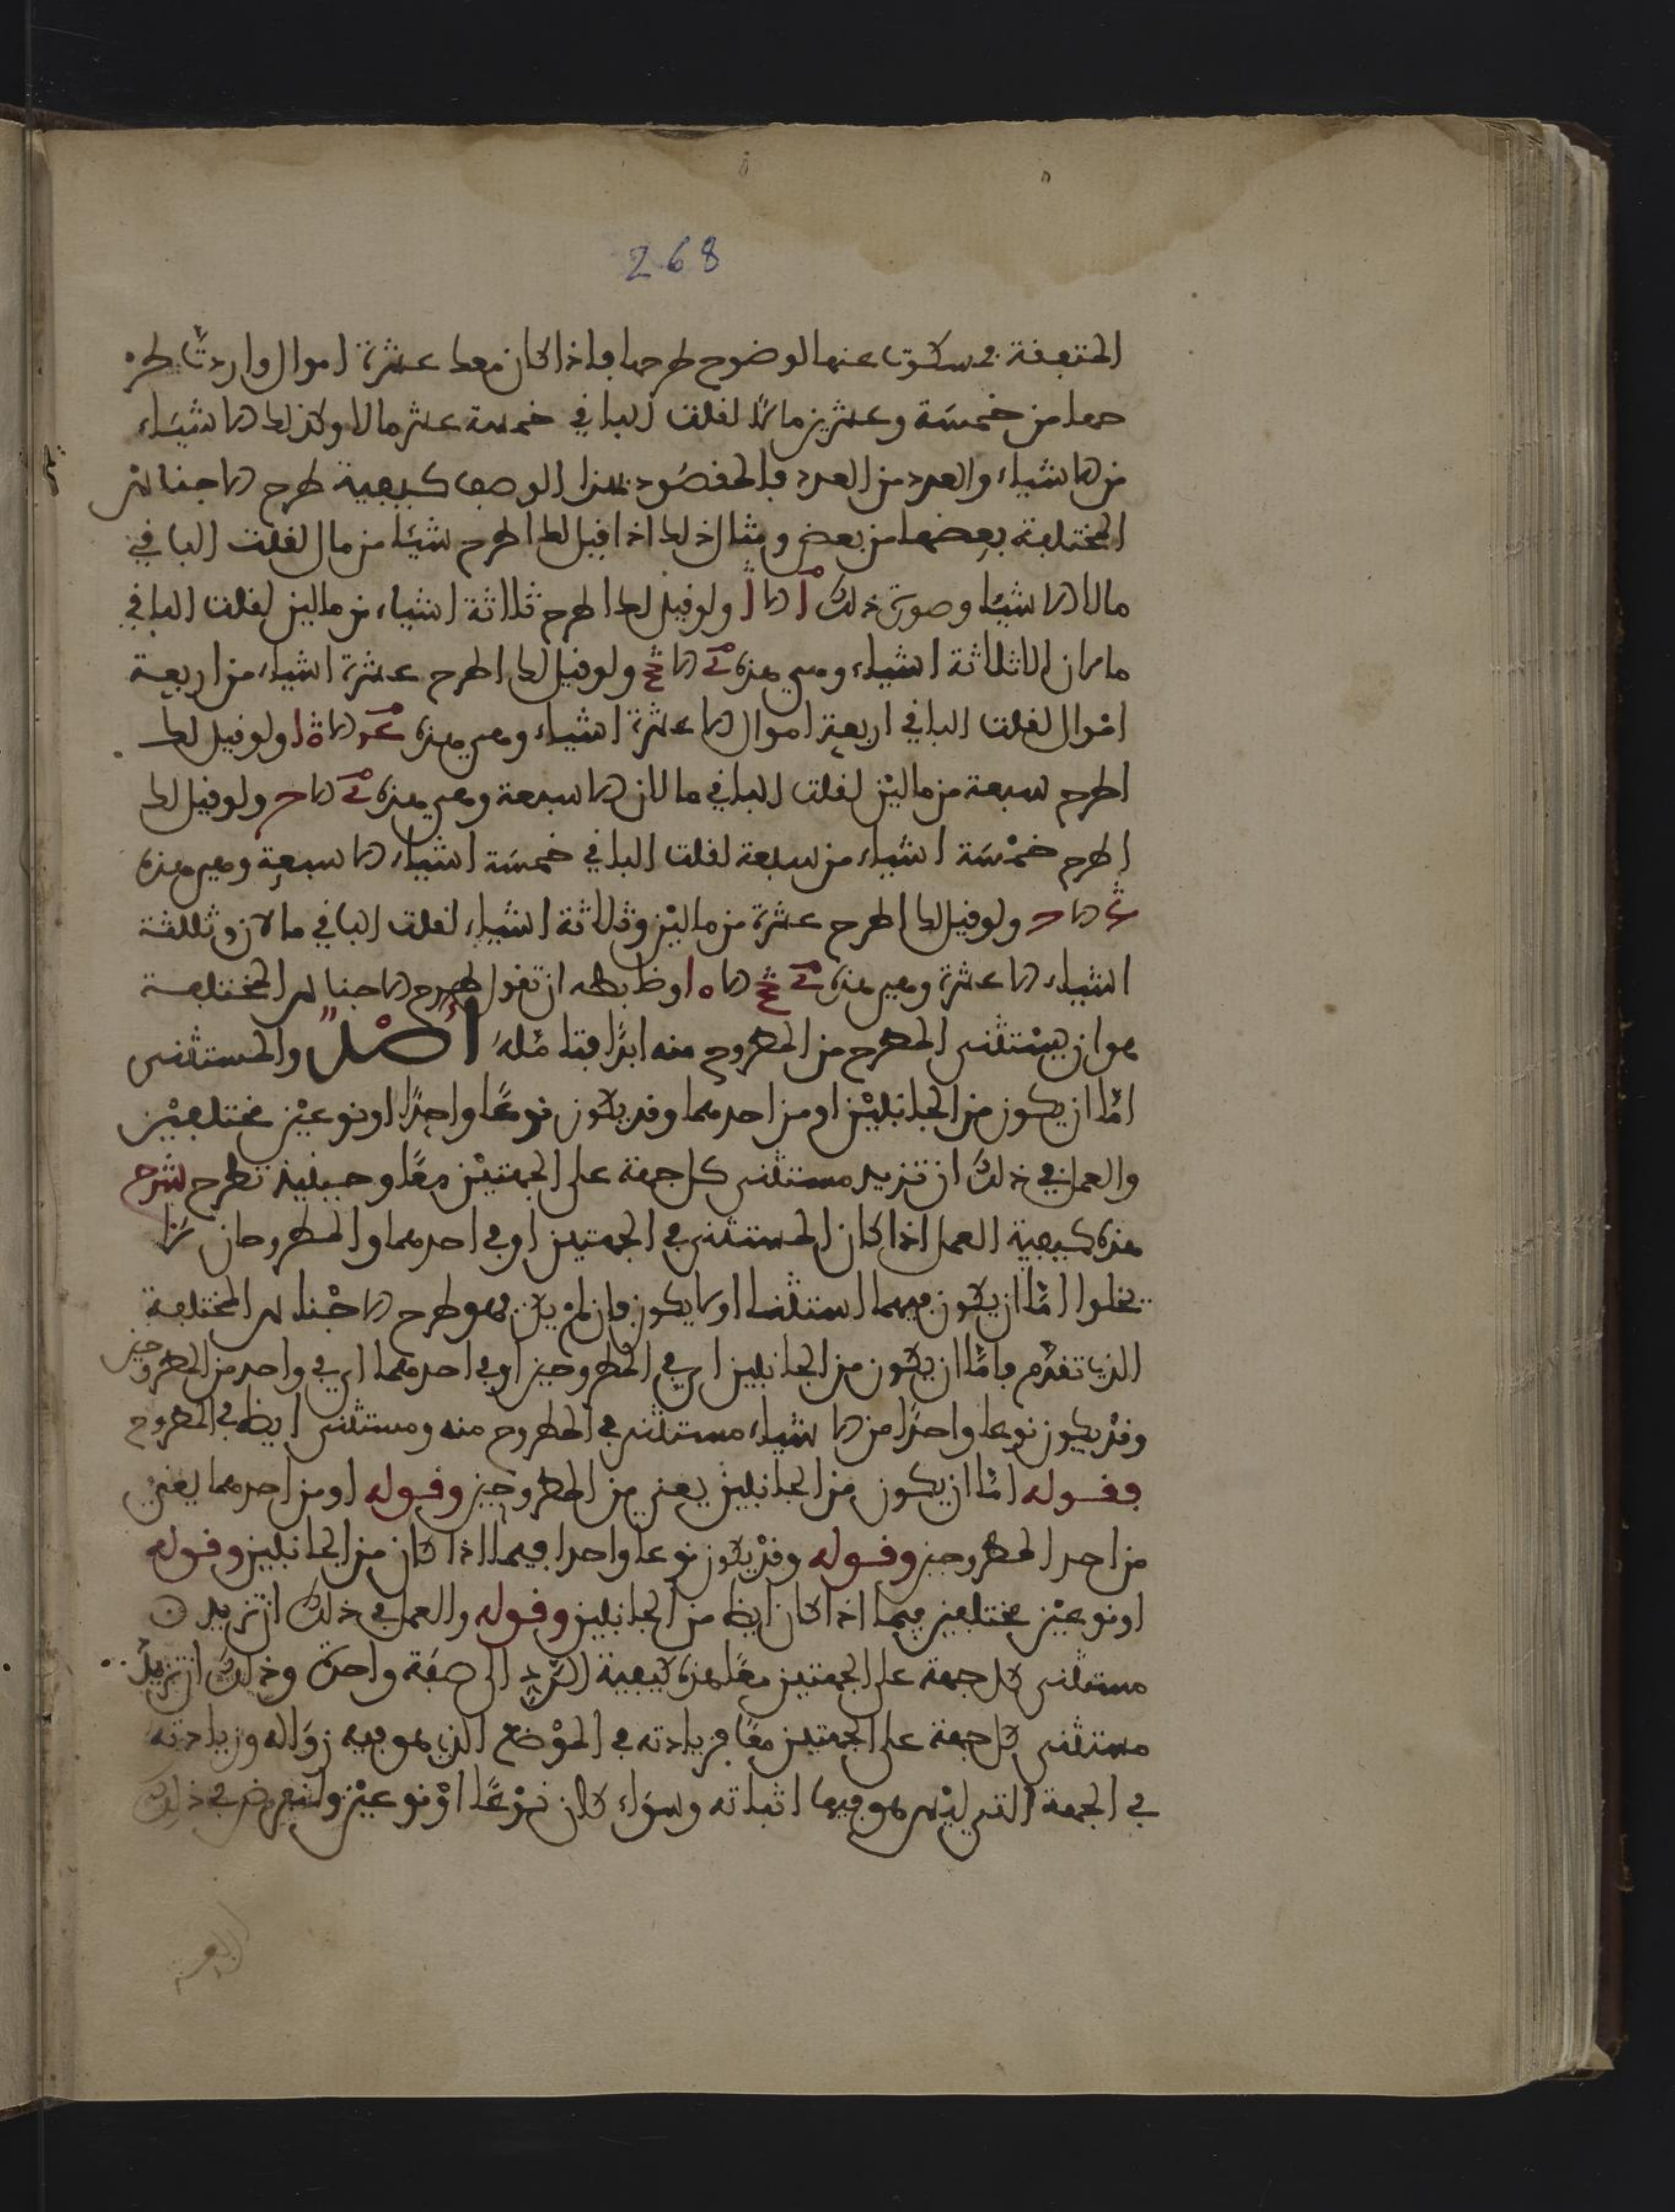 268
المتفقة مسكوت عنها لوضوح طرحها فاذا كان معك عشرة اموال واردت طر
حها من خمسة وعشرين مالا لقلت الباقي خمسة عشر مالا وكذلك الاشياء
من الاشياء والعدد من العدد فالمقصود بهذا الوصف كيفية طرح الاجناس
المختلفة بعضها من بعض ومثال ذلك اذا قيل لك اطرح شيئا من مال لقلت الباقي
مال الا شيئا وصورة ذلك ولو قيل لك اطرح ثلاثة اشياء من مالين لقلت الباقي
مالان الا ثلاثة اشياء وهي هذه ولو قيل لك اطرح عشرة اشياء من اربعة
اموال لقلت الباقي اربعة اموال الا عشرة اشياء وهي هذه ولو قيل لك
اطرح سبعة من مالين لقلت الباقي مالان الا سبعة وهي هذه ولو قيل لك
اطرح خمسة اشياء من سبعة لقلت الباقي خمسة اشياء الا سبعة وهي هذه
ولو قيل لك اطرح عشرة من مالين وثلاثة اشياء لقلت الباقي مالان وثلثة
اشياء الا عشرة وهي هذه وظابطه ان تقول طرح الاجناس المختلفة
هو ان يستثنى المطرح من المطروح منه ابدا فتامله اصل والمستثنى
اما ان يكون من الجانبين او من احدهما وقد يكون نوعا واحدا او نوعين مختلفين
والعمل في ذلك ان تزيد مستثنى كل جهة على الجهتين معا وحينئذ تطرح شرح
هذه كيفية العمل اذا كان المستثنى في الجهتين او في احدهما والمطروحان لا
يخلوا اما ان يكون فيهما استثنا او لا يكون فان لم يكن فهو طرح الاجناس المختلفة
الذي تقدم واما ان يكون من الجانبين اي في المطروحين او في احدهما اي في واحد من المطروحين
وقد يكون نوعا واحدا من الاشياء مستثنى في المطروح منه ومستثنى ايظا في المطروح
فقوله اما ان يكون من الجانبين يعني من المطروحين وقوله او من احدهما يعني
من احد المطروحين وقوله وقد يكون نوعا واحدا فيهما اذا كان من الجانبين وقوله
او نوعين مختلفين فيهما اذا كان ايظا من الجانبين وقوله والعمل في ذلك ان تزيد
مستثنى كل جهة على الجهتين معا هذه كيفية الرد الى صفة واحدة وذلك ان تزيد
مستثنى كل جهة على الجهتين معا فزيادته في الموضع الذي هو فيه زواله وزيادته
في الجهة التي ليس هو فيها اثباته وسواء كان نوعا او نوعين والغرض في ذلك